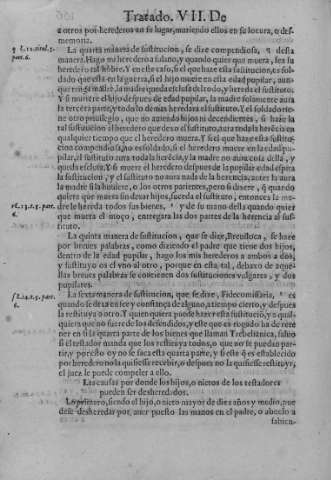 Tratado. VII. De
a otros por herederos en su lugar, muriendo ellos en su locura, o des-
memoria.
La quarta manera de sustitucion, se dize compendiosa, q̃ desta
manera. Hago mi heredero a fulano, y quando quier que muera, sea su
heredero tal hõbre. Y en este caso, si el que haze esta sustitucion, es solda-
do que esta en la guerra, si el hijo muere en edad pupilar, o despues de
la edad pupilar, la madre queda excluida de todo, y hereda el sustituto. Y
si muere el hijo despues de edad pupilar, la madre solamente aura
la tercera parte, y todo lo demas heredara el sustituto. Y el soldado tie-
ne otro priuilegio, que no auiendo hijos ni decendientes, si haze la
tal sustitucion al heredero que dexa el sustituto, aura toda la herẽcia en
qualquier tiempo que el heredero muera. Y si el que haze esta sustitu-
cion compendiosa, no es soldado, y muere el heredero en la edad pupi-
lar, el sustituto aura toda la herẽcia, y la madre no aura cosa della, y
queda exclusa. Y si muere el heredero despues de la pupilar edad espira
la sustitucion, y el sustituto no aura nada de la herencia, antes la aura
la madre si la huuiere, o los otros parientes, pero si dixere, q̃ quando
quiera que muera sin dexar hijos, suceda el sustituto, entonces la ma-
dre la hereda todos sus bienes. q̃ vale su manda quando quier
que muera el moço, entregara las dos partes de la herencia al susti-
tuto.
La quinta manera de sustitucion, que se dize, Breuiloca, se haze
por breues palabras, como diziendo el padre que tiene dos hijos,
dentro de la edad pupilar, hago los mis herederos a ambos a dos,
y sustituyo os el vno al otro, porque en esta tal, debaxo de aque-
llas breues palabras se contienen dos sustituciones vulgares, y dos
pupilares.
La sexta manera de sustitucion, que se dize, Fideicomissaria, q̃ es
quando se dexa en fee y confiança de alguno, a tiempo cierto, y despues
la restituya a otro. Y quien quiera puede hazer esta sustitució, y a qual-
quiera que no fuere de los defendidos, y este que es rogado ha de rete-
ner en si la quarta parte de los bienes que llaman Trebelianica, saluo
si el testador manda que los restituya todos, o que no se puede par-
tir, y por esso oy no se saca esta quarta parte, y si este q̃ es establecido
por heredero no la quisiesse recebir, o despues no la quisiesse restituyr,
el juez le puede compeler a ello.
Las causas por donde los hijos, o nietos de los testadores
pueden ser desheredados.
Lo primero, siendo el hijo, o nieto mayor de diez años y medio, pue
de se desheredar por auer puesto las manos en el padre, o abuelo a
sabien-